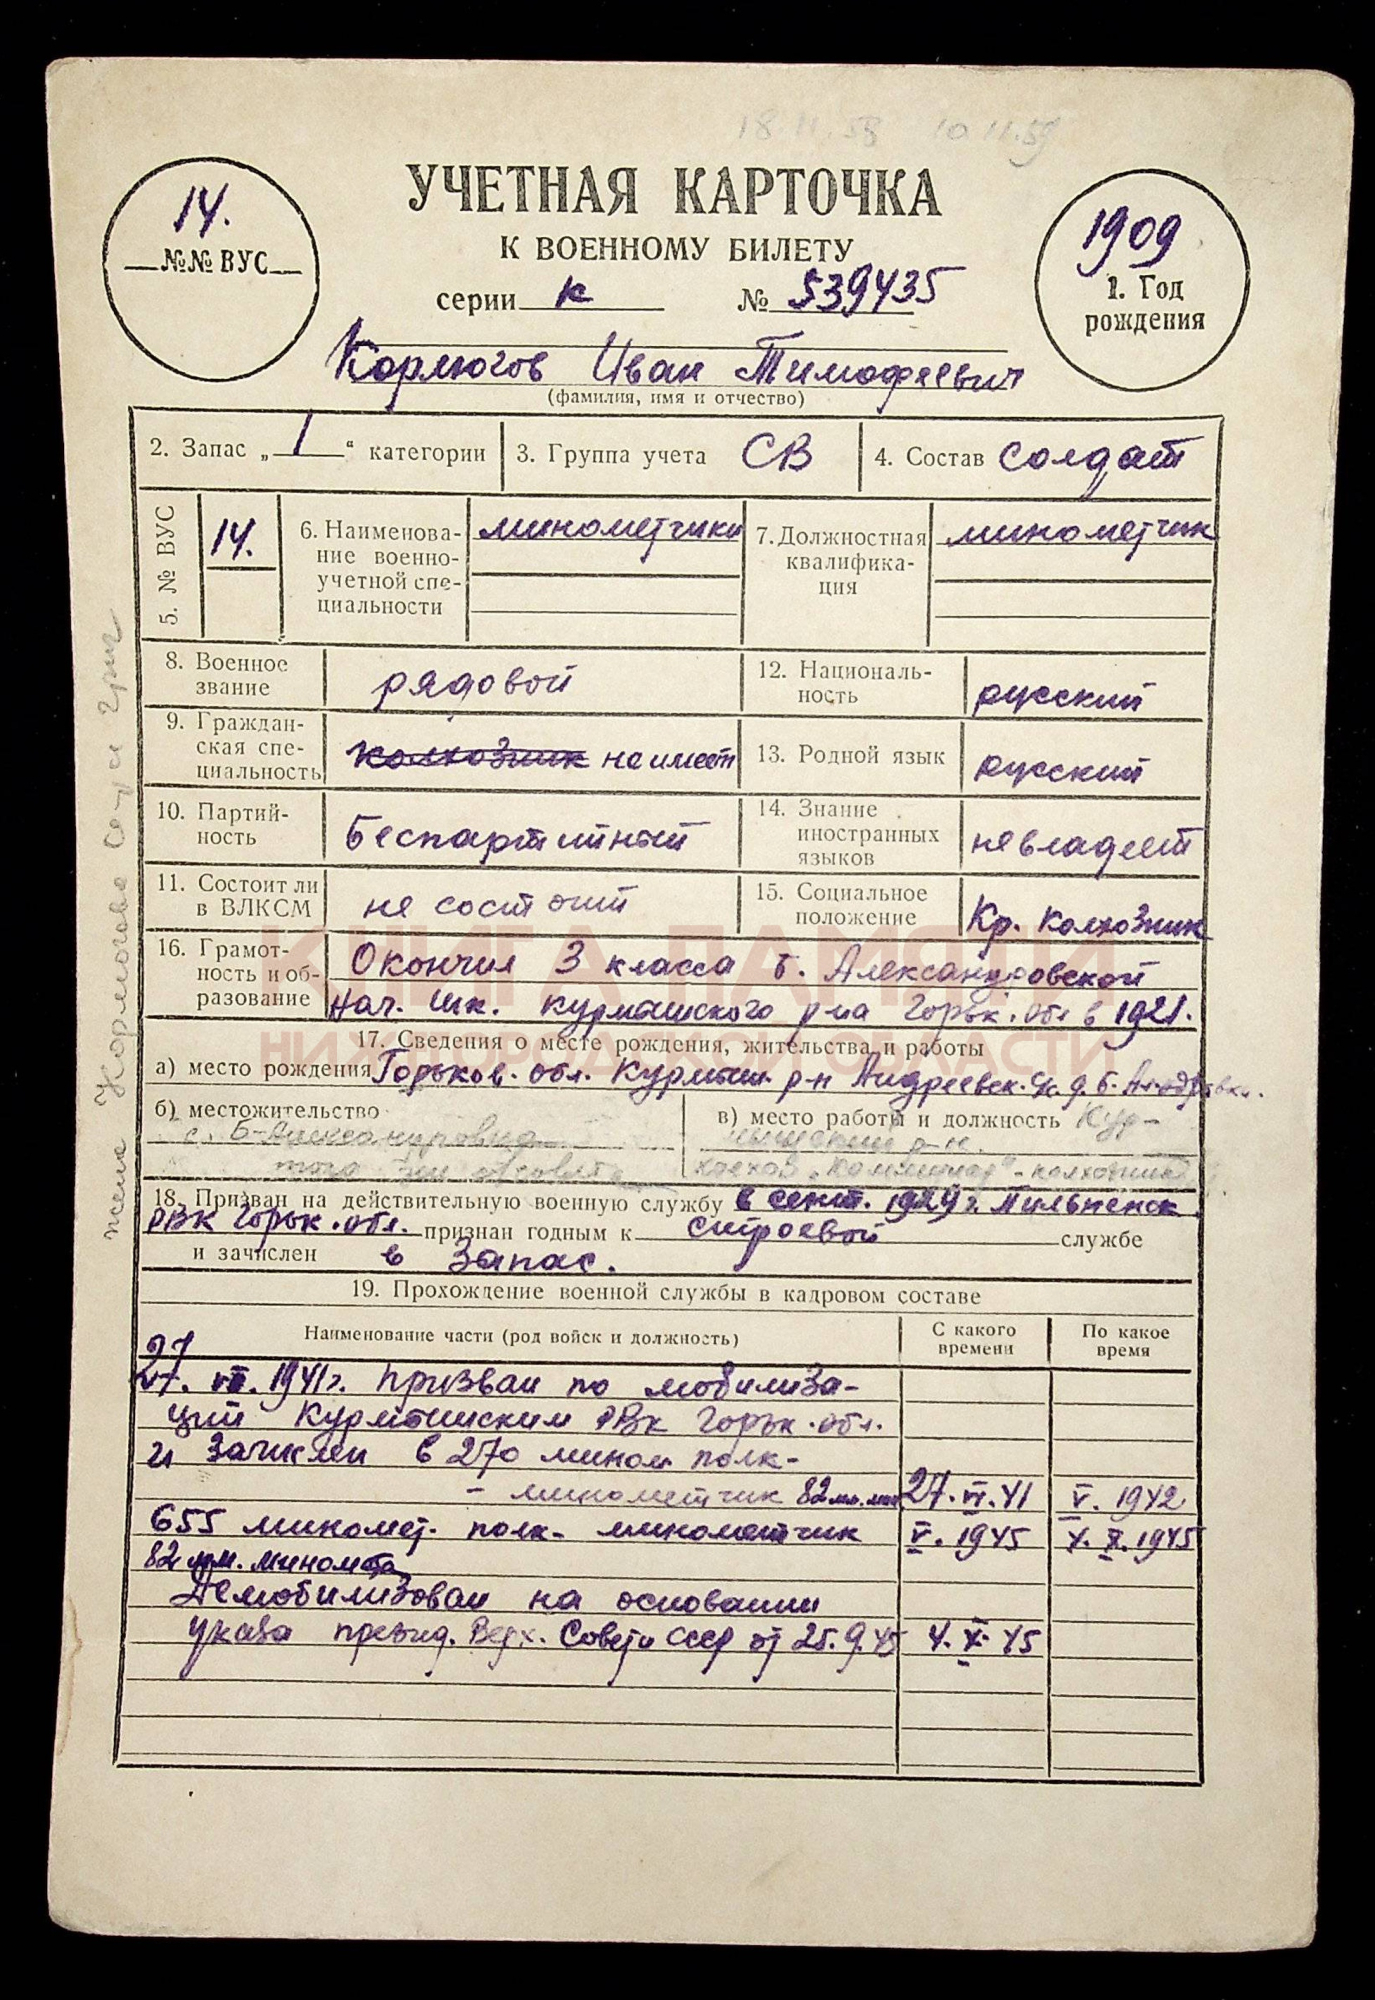 18 11.58 10.11.59
УЧЕТНАЯ КАРТОЧКА
К ВОЕННОМУ БИЛЕТУ
серии к № 539435
14.
№№ ВУС
1909
1. Год
рождения
Кормогов Иван Тимофеевич
(фамилия, имя и отчество)
2. Запас „ 1 “ категории
3. Группа учета СВ
4. Состав солдат
5. № ВУС 14.
6. Наименова-
ние военно-
учетной спе-
циальности
минометчики
7. Должностная
квалифика-
ция
минометчик
8. Военное
звание
рядовой
12. Националь-
ность
русский
9. Граждан-
ская спе-
циальность
колхозник не имеет
13. Родной язык
русский
10. Партий-
ность
Беспартийный
14. Знание
иностранных
языков
не владеет
11. Состоит ли
в ВЛКСМ
не состоит
15. Социальное
положение
Кр. колхозник
16. Грамот-
ность и об-
разование
Окончил 3 класса Б. Александровской
нач. шк. Курмышского р-на Горьк. обл в 1921.
17. Сведения о месте рождения, жительства и работы
а) место рождения Горьков. обл. Курмыш. р-н Андреевск. с/с д. Б.
б) местожительство
с. Б-Александровка
того же с/совета
в) место работы и должность Кур-
мышский р-н.
колхоз „Коммунар“ - колхозник
18. Призван на действительную военную службу в сент. 1929 г. Пильненск
РВК Горьк. обл. признан годным к строевой службе
и зачислен в запас.
19. Прохождение военной службы в кадровом составе
Наименование части (род войск и должность)
С какого
времени
По какое
время
27
27. VII. 1941г. Призван по мобилиза-
ции Курмышским РВК Горьк. обл.
и зачислен в 270 мином полк-
- минометчик 82 мм. мин 27. VI. 41 V. 1942
655 миномет. полк- минометчик V. 1945 X. 1945
82 мм. миномета
Демобилизован на основании
указа презид. Верх. Совета СССР от 25.9.45 4. X. 45
жена Кормогова
КНИГА ПАМЯТИ
НИЖЕГОРОДСКОЙ ОБЛАСТИ